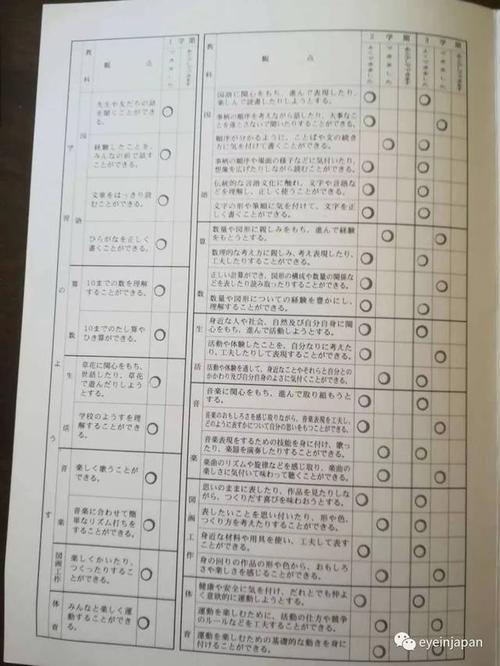 教科
観点
1学期
先生や友だちの話
を聞くことがで
きる。
経験したことを、
みんなの前で話す
ことができる。
文章をはっきり読
むことができる。
ひらがなを正しく
書くことができる。
国語
10までの数を理解
することができる。
10までのたし算や
ひき算ができる。
算数
草花に関心をもち、
世話したり、草花
で遊んだりしよう
とする。
学校のようすを理
解することができ
る。
生活
楽しく歌うことが
できる。
音楽に合わせて簡
単なリズム打ちを
することができる。
音楽
楽しくかいたり、
つくったりするこ
とができる。
図画工作
みんなと楽しく運
動することができ
る。
体育
学習のようす
教科
観点
2学期
3学期
国語に関心をもち、進んで表現したり、
楽しんで読書したりしようとする。
事柄の順序を考えながら話したり、大事なこ
とを落とさないで聞いたりすることができる。
順序が分かるように、ことばや文の続き
方に気を付けて書くことができる。
事柄の順序や場面の様子などに気付いたり、
想像を広げたりしながら読むことができる。
伝統的な言語文化に触れ、文字や言語など
を理解し、正しく使うことができる。
文字の形や筆順に気を付けて、文字を正
しく書くことができる。
国語
数量や図形に親しみをもち、進んで経験
をもとうとする。
数理的な考え方に親しみ、考え表現したり、
工夫したりすることができる。
正しい計算ができ、図形の構成や数量の関係な
どを表したり読み取ったりすることができる。
数量や図形についての経験を豊かにし、
理解することができる。
算数
身近な人や社会、自然及び自分自身に関
心をもち、進んで活動しようとする。
活動や体験したことを、自分なりに考えた
り、工夫したりして表現することができる。
活動や体験を通して、身近なことやそれらと自分との
かかわり及び自分自身のよさに気付くことができる。
生活
音楽に関心をもち、進んで取り組もうと
する。
音楽のおもしろさを感じ取りながら、音楽表現を工夫し、
どのように表すかについて自分の思いをもつことができる。
音楽表現をするための技能を身に付け、歌っ
たり、楽器を演奏したりすることができる。
楽曲のリズムや旋律などを感じ取り、楽曲の
楽しさに気付いて味わって聴くことができる。
音楽
思いのままに表したり、作品を見たりしな
がら、つくりだす喜びを味わおうとする。
表したいことを思い付いたり、形や色、
つくり方を考えたりすることができる。
身近な材料や用具を使い、工夫して表す
ことができる。
身の回りの作品の形や色から、おもしろ
さや楽しさを感じることができる。
図画工作
健康や安全に気を付け、だれとでも仲よ
く意欲的に運動しようとする。
運動を楽しむために、活動の仕方や競争
のルールなどを工夫することができる。
運動を楽しむための基礎的な動きを身に
付けることができる。
体育
eyeinjapan